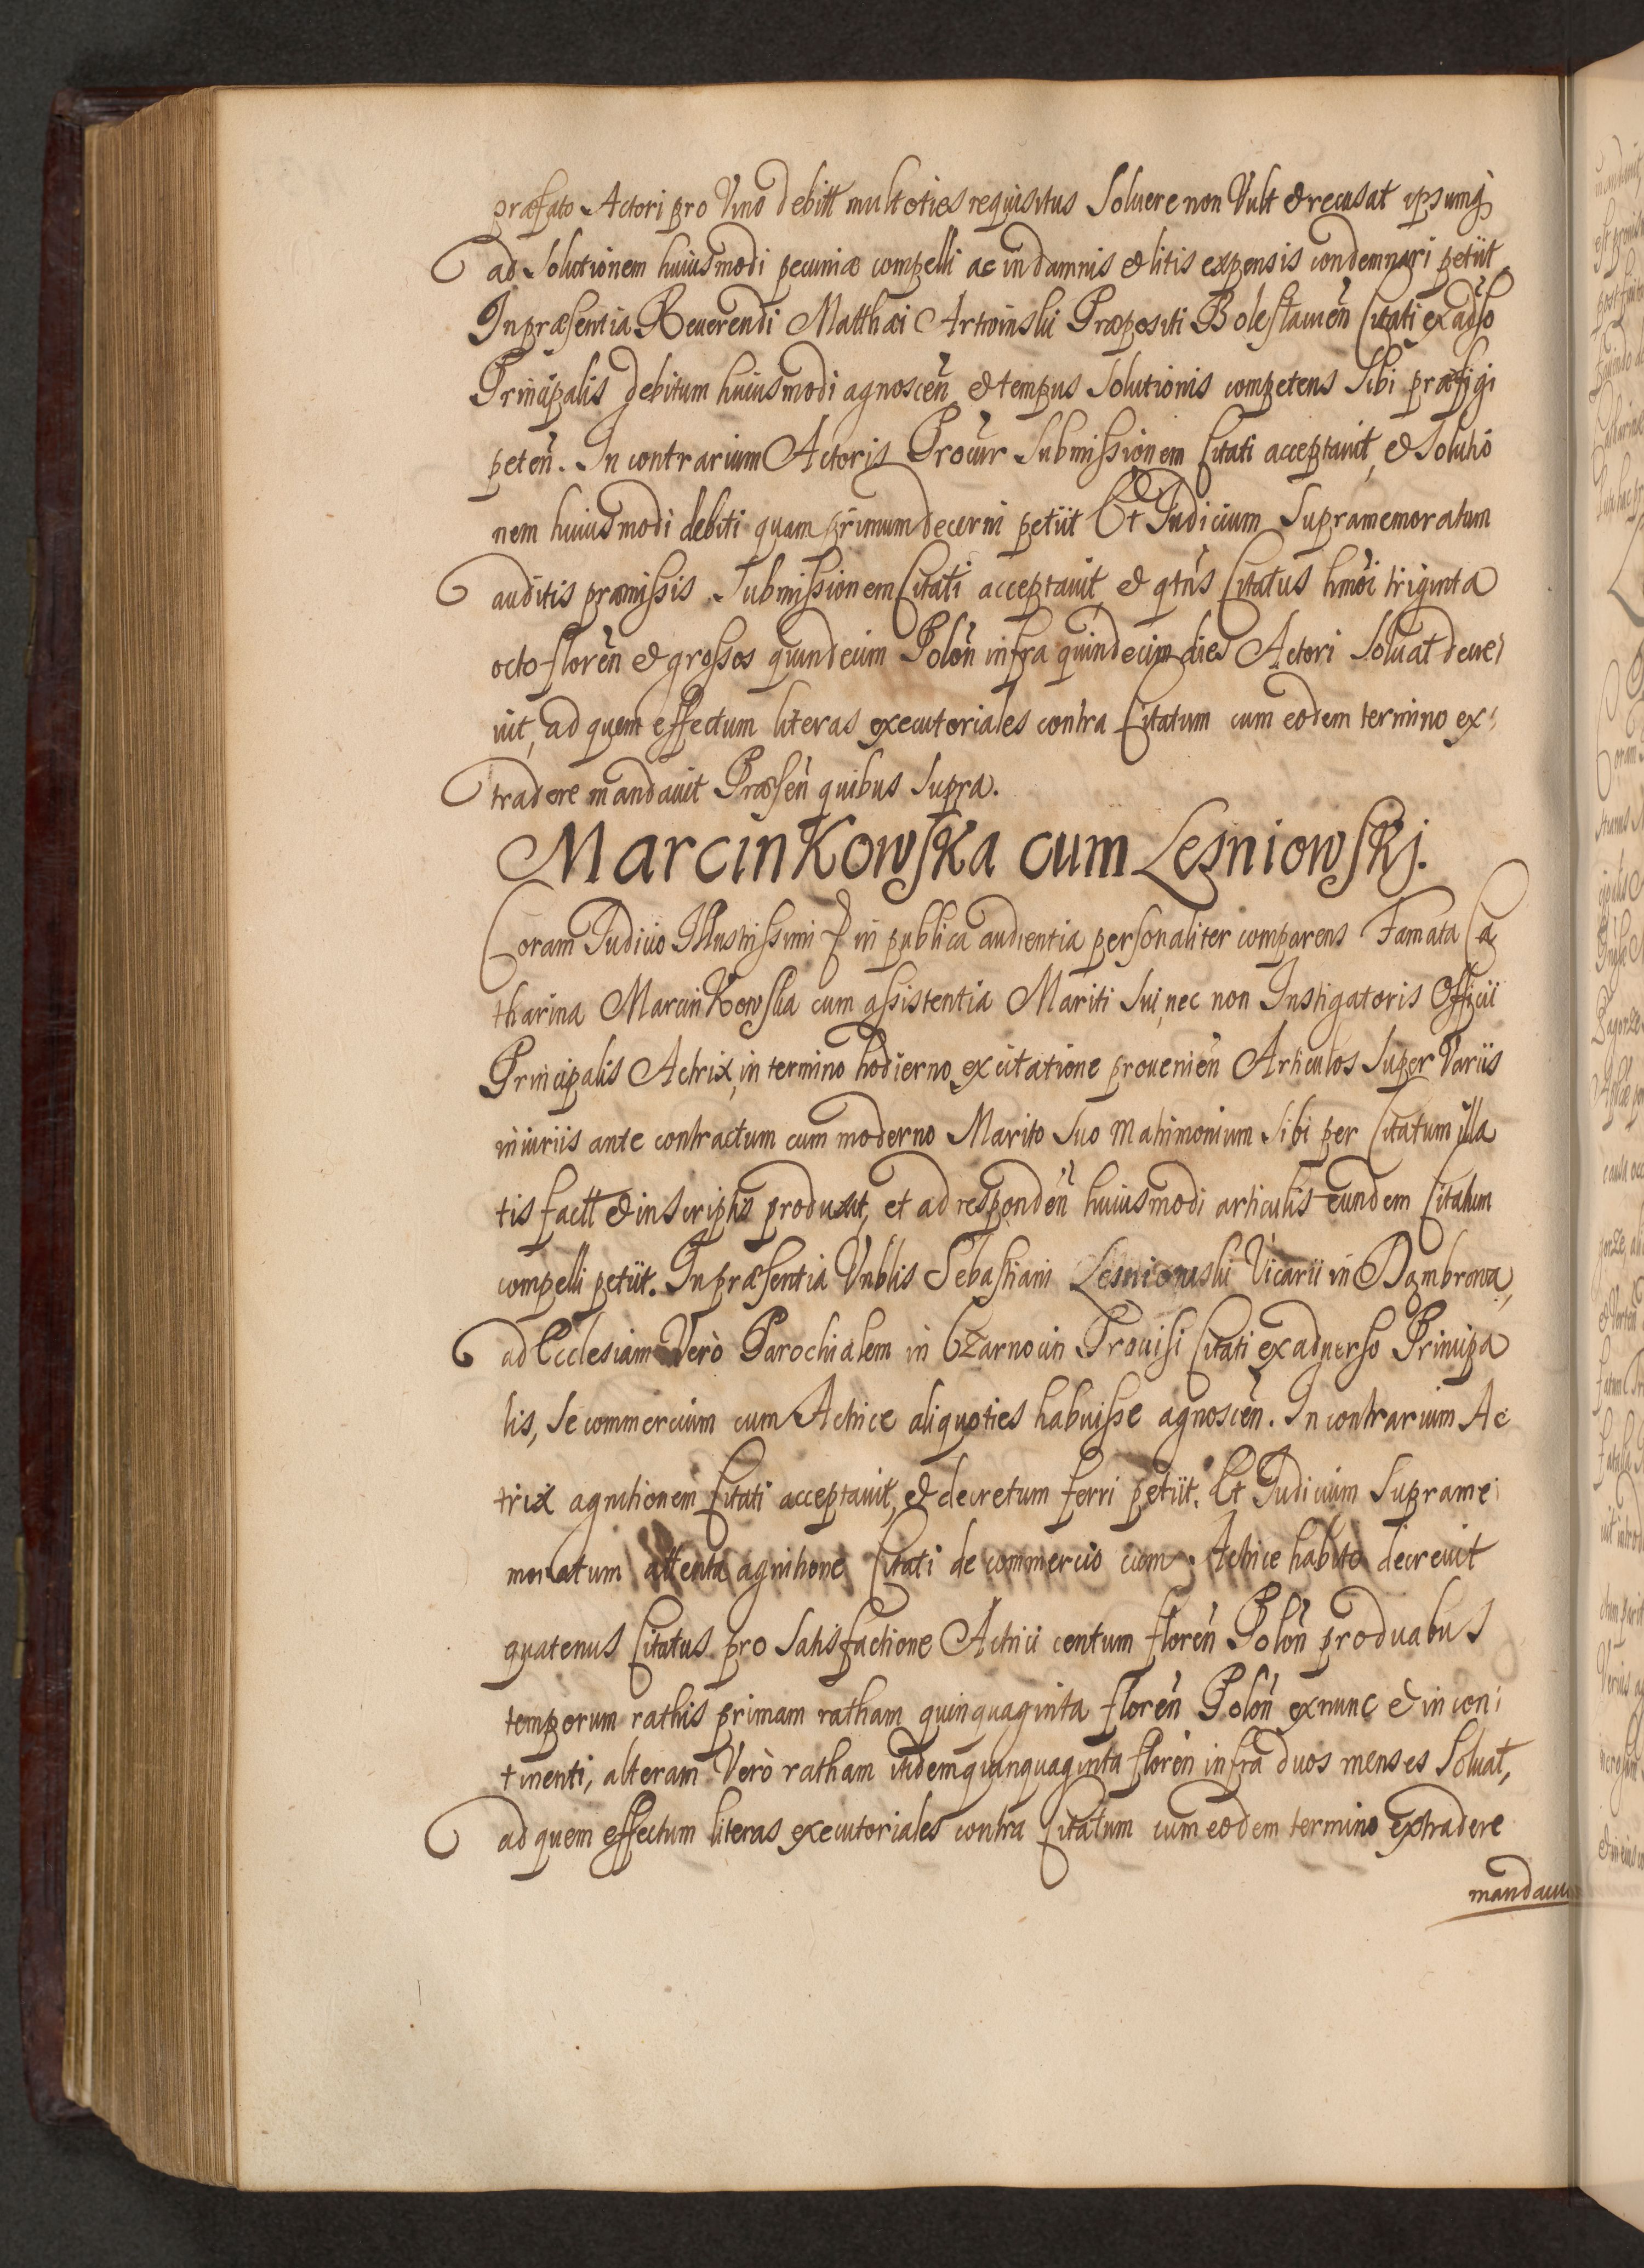 præfato Actori pro Vino debitt multoties requisitus Soluere non Vult & recusat ipsumq́
ad Solutionem huiusmodi pecuniæ compelli ac in damnis & litis expensis condemnari petiit
In præsentia Reuerendi Matthæi Præpositi Citati ex adso
Principalis debitum huiusmodi agnosceñ & tempus Solutionis competens Sibi præfigi
peteñ. In contrarium Actoris Procur Submissionem Citati acceptauit, & Solutio
nem huiusmodi debiti quam primum decerni petiit Et Judicium Supramemoratum
auditis præmissis Submissionem Citati acceptauit & qtns Citatus hmoi triginta
octo floreñ & grossos quindecim Poloñ infra quindecim dies Actori Soluat decre
uit, ad quem effectum literas executoriales contra Citatum cum eodem termino ex
tradere mandauit Præseñ quibus Supra.
Marcinkowska cum Lesniowskj.
Coram Judicio Illustrissimi & in publica audientia personaliter comparens Famata Ca
tharina Marcinkowska cum assistentia Mariti Sui, nec non Instigatoris Officii
Principalis Actrix, in termino hodierno ex citatione prouenieñ Articulos Super Variis
iniuriis ante contractum cum moderno Marito Suo Matrimonium Sibi per Citatum illa
tis factt & inscriptis produxit, et ad respondeñ huiusmodi articulis eundem Citatum
compelli petiit. In præsentia Vnblis Sebastiani Lesniowski Vicarii in Dąmbrowa,
ad Ecclesiam Verò Parochialem in Czarnocin Prouisi Citati ex aduerso Principa
lis, Se commercium cum Actrice aliquoties habuisse agnosceñ. In contrarium Ac
trix agnitionem Citati acceptauit, & decretum ferri petiit. Et Judicium Suprame
moratum attenta agnitione Citati de commercio cum Actrice habito decreuit
quatenus Citatus pro Satisfactione Actrici centum floreñ Poloñ pro duabus
temporum rathis primam ratham quinquaginta floreñ Poloñ ex nunc & in con
tinenti, alteram Verò ratham itidem quinquaginta floreñ infra duos menses Soluat,
ad quem effectum literas executoriales contra Citatum cum eodem termino extradere